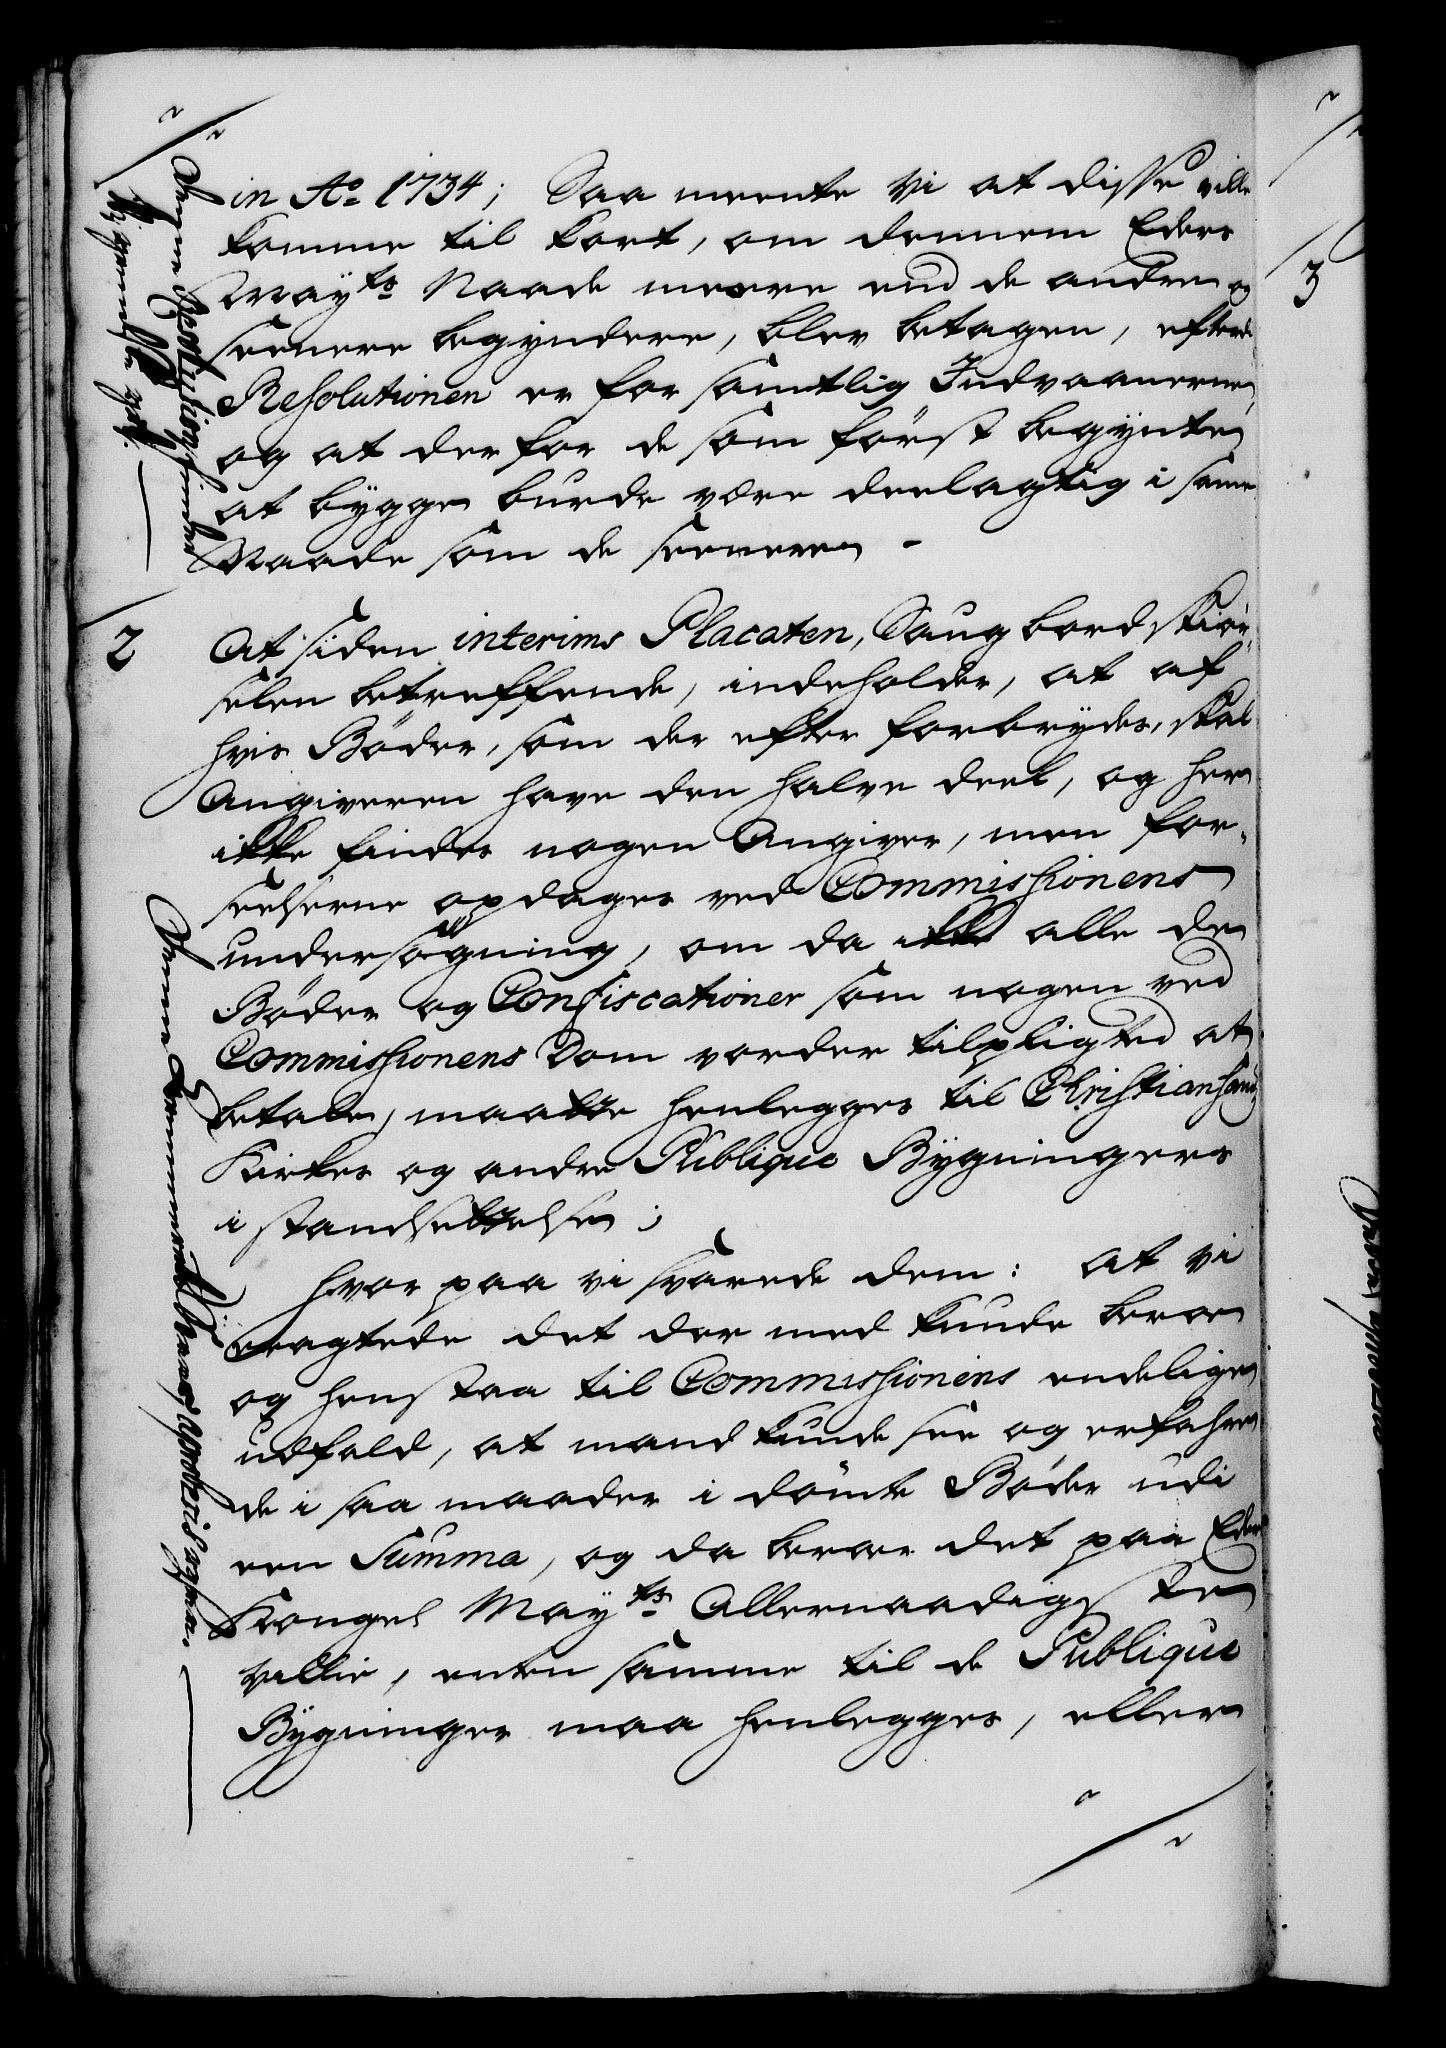 in Ao 1734; Saa meente Vi at disse ville
komme til kort, om dennem Eders
Mayts Naade meere end de andre og
seenere begyndere, blev betagen, efterdi
Resolutionen er for samtlig Indvaanerne,
og at derfor de som først begynte
at bygge burde være deelagtig i samme
Naade som de seenere -
2
At siden interims Placaten, Saugbordskiør¬
selen betreffende, indeholder, at af
hvis Bøder, som der efter forbrydes, skal
Angiveren have den halve deel, og her
ikke findes nogen Angiver, men for¬
seelserne opdages ved Commissionens
undersøgning, om da ikke alle de
Bøder og Confiscationer som nogen ved
Commissionens Dom vorder tilpligted at
betale, maatte henlegges til Christiansands
Kirkes og andre Publique Bygningers
istandsettelse;
Hvor paa vi svarede dem: At vi
eragtede det der med kunde beroe
og henstaa til Commissionens endelige
udfald, at mand kunde see og erfahre
de i saa maader i dømte Bøder udi
een Summa, og da beroer det paa Eders
Kongel Mayts Allernaadigste
Villie, enten samme til de Publique
Bygninger maa henlegges, eller
3